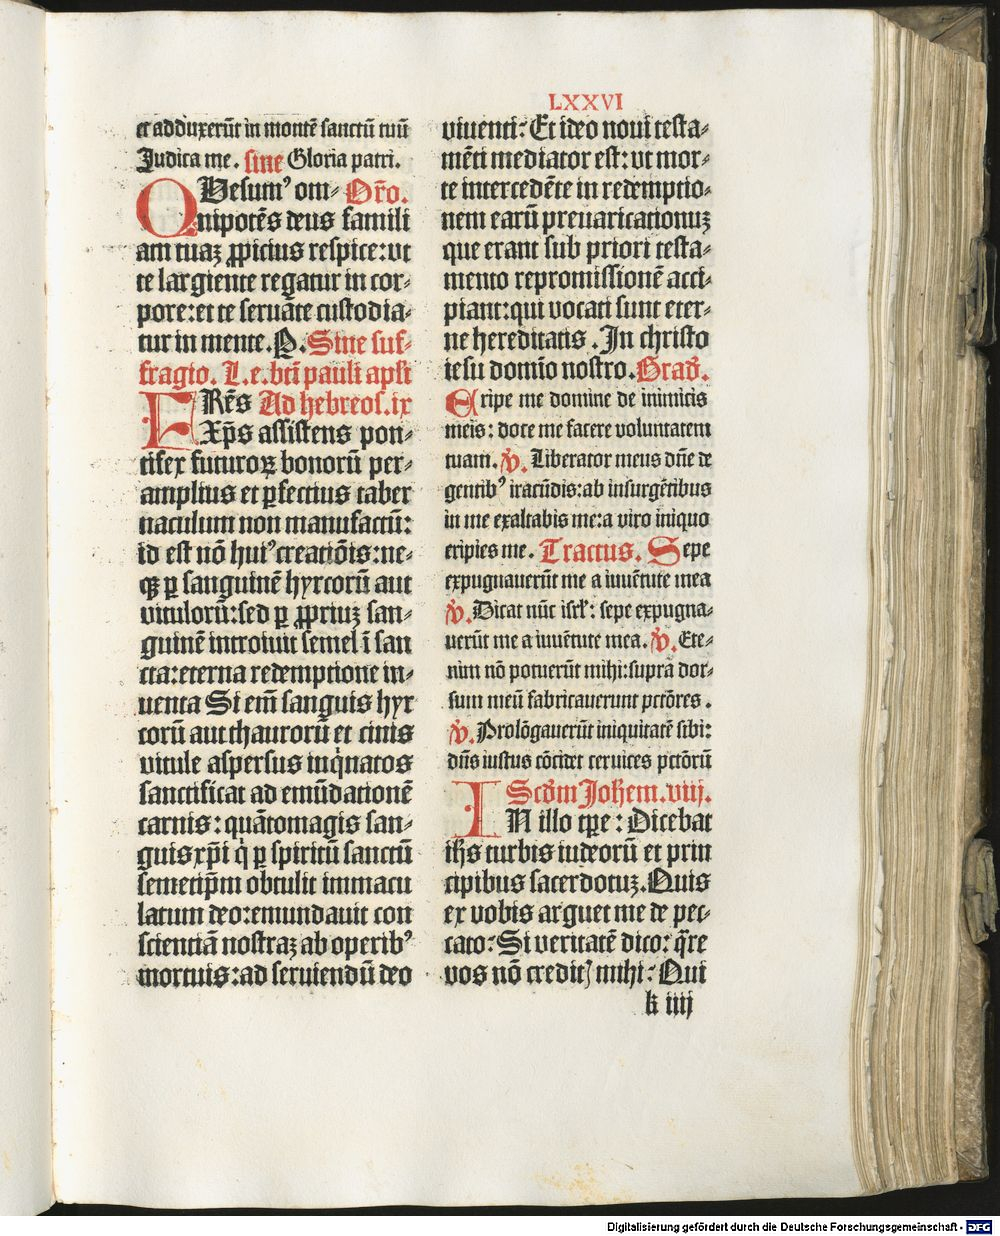 LXXVI
et adduxerūt in montē sanctū tuū
Judica me. sine Gloria patri.
QVesumꝰ om⸗ Or̄o.
nipotēs deus famili
am tuaꝫ ꝓpicius respice:vt
te largiente regatur in cor⸗
pore:et te seruāte custodia⸗
tur in mente.P. Sine suf⸗
fragio. L.e.bti pauli apsti
FRēs Ad hebreos.ix
Xp̄s assistens pon⸗
tifex futuroꝝ bonorū per⸗
amplius et ꝑfectius taber
naculum non manufactū:
id est nō huiꝰ creatiōis:ne⸗
qꝫ ꝑ sanguinē hyrcorū aut
vitulorū:sed ꝑ ꝓpriuꝫ san⸗
guinē introiuit semel ī san
cta:eterna redemptione in⸗
uenta Si em̄ sanguis hyr
corū aut thaurorū et cinis
vitule aspersus inqͥnatos
sanctificat ad emūdationē
carnis: quātomagis san⸗
guis xp̄i qͥ ꝑ spiritū sanctū
semetip̄m obtulit immacu
latum deo:emundauit con
scientiā nostraꝫ ab operibꝰ
mortuis:ad seruiendū deo
viuenti: Et ideo noui testa⸗
mēti mediator est: vt mor⸗
te intercedēte in redemptio⸗
nem earū preuaricationuꝫ
que erant sub priori testa⸗
mento repromissionē acci⸗
piant:qui vocati sunt eter⸗
ne hereditatis. In christo
iesu domīo nostro. Grad̄.
Eripe me domine de inimicis
meis: doce me facere voluntatem
tuam. ℣. Liberator meus dn̄e de
gentibꝰ iracūdis:ab insurgētibus
in me exaltabis me:a viro iniquo
eripies me. Tractus. Sepe
expugnauerūt me a iuuētute mea
℣. Dicat nūc isrl̄: sepe expugna⸗
uerūt me a iuuētute mea. ℣. Ete⸗
nim nō potuerūt mihi:supra dor⸗
sum meū fabricauerunt pctōres.
℣. Prolōgauerūt iniquitatē sibi:
dn̄s iustus cōcidet ceruices pctōrū
Scd̄m Joh̄em.viij.
IN illo tp̄e: Dicebat
ih̄s turbis iudeorū et prin
cipibus sacerdotuꝫ. Quis
ex vobis arguet me de pec⸗
cato: Si veritatē dico: qͣre
vos nō creditꝭ mihi: Qui
k iiij
Digitalisierung gefördert durch die Deutsche Forschungsgemeinschaft - DFG